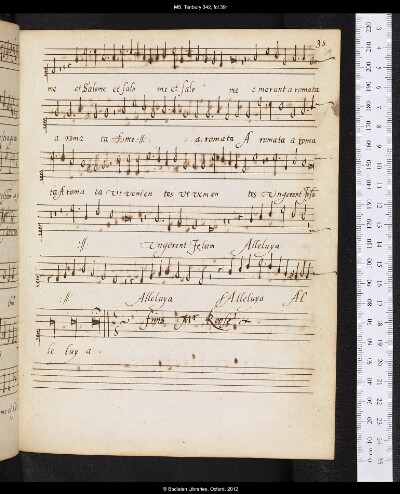 MS. Tenbury 342, fol.36r
36
me et Salome et salo me et salo me emerunt a romata
a roma ta :||: a romata A romata a roma
ta A roma ta Vt venien tes Vt venien tes Vngerent Jesu
:||: Vngerent Jesum Alleluya
:||: Alleluya Alleluya Al
le luy a
finis Mr
© Bodleian Libraries, Oxford, 2012